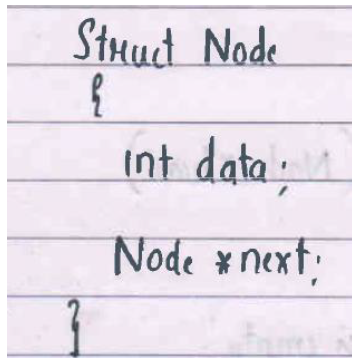 Struct Node
{
int data;
Node *next;
}